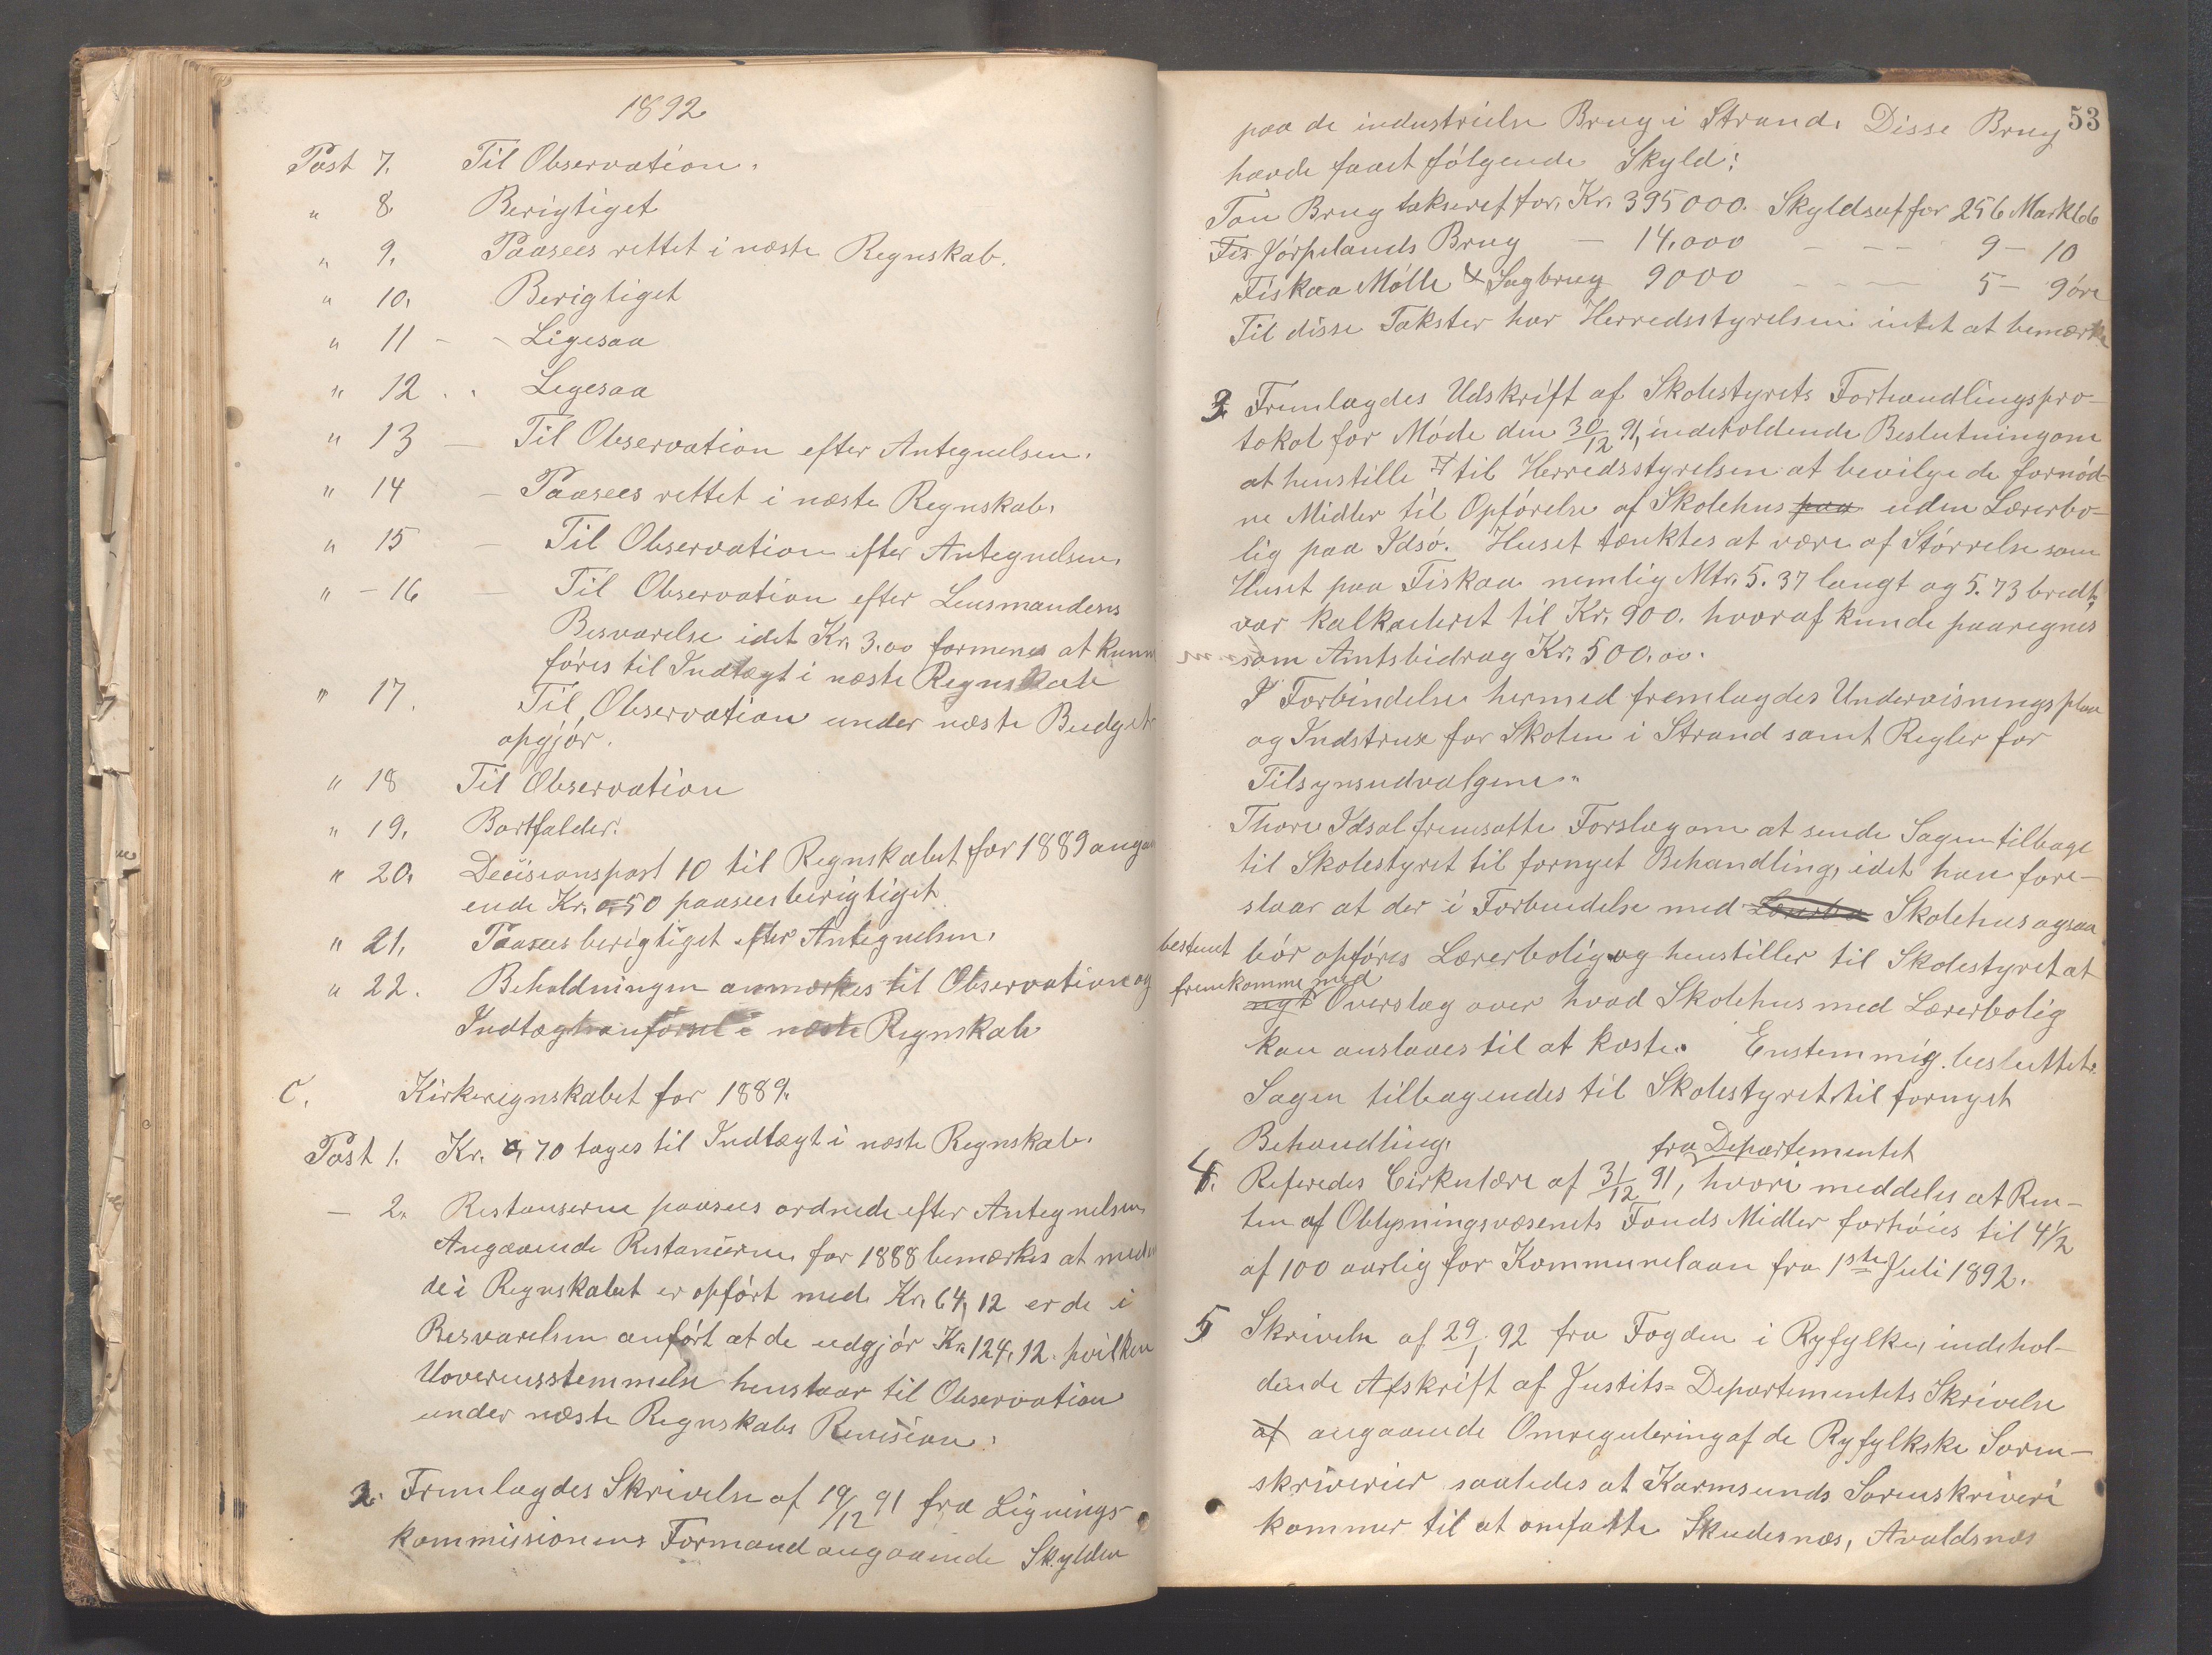 1892
Post 7. Til Observation.
" 8. Berigtiget
" 9. Paasees rettet i næste Regnskab.
" 10. Berigtiget
" 11 - - Ligesaa
" 12 . . Ligesaa
" 13 — Til Observation efter Antegnelsen.
" 14 — Paasees rettet i næste Regnskab.
" 15 — Til Observation efter Antegnelsen.
" - 16 — Til Observation efter Lensmandens
Besvarelse idet Kr. 3.00 formenes at kunne
føres til Indtægt i næste Regnskab
" 17. Til Observation under næste Budget
opgjør.
" 18 Til Observation
" 19. Bortfalder.
" 20. Decisionspost 10 til Regnskabet for 1889 angaa
ende Kr. 0,50 paasees berigtiget.
" 21. Paasees berigtiget efter Antegnelsen.
" 22. Beholdningen anmærkes til Observation og
Indtægtsanførsel i næste Regnskab
C. Kirkeregnskabet for 1889.
Post 1. Kr. 0,70 tages til Indtægt i næste Regnskab.
— 2. Restanserne paasees ordnede efter Antegnelsen
Angaaende Restanserne for 1888 bemærkes at medens
de i Regnskabet er opført med Kr. 64,12 er de i
Besvarelsen anført at de udgjør Kr. 124,12. hvilken
Uoverensstemmelse henstaar til Observation
under næste Regnskabs Revision.
2. Fremlagdes Skrivelse af 19/12 91 fra Lignings
kommissionens Formand angaaende Skylden
53
paa de industrielle Brug i Strand. Disse Brug
havde faaet følgende Skyld:
Tou Brug takseret for. Kr. 395000. Skyldsat for 256 Mark 66
Fis Jørpelands Brug — 14.000 — — — 9 — 10
Fiskaa Mølle & Sagbrug 9000 — — — 5 — 9 øre
Til disse Takster har Herredsstyrelsen intet at bemærke
3. Fremlagdes Udskrift af Skolestyrets Forhandlingspro-
tokol for Møde den 30/12 91, indeholdende Beslutning om
at henstille til Herredsstyrelsen at bevilge de fornød-
ne Midler til Opførelse af Skolehus paa uden Lærerbo-
lig paa Idsø. Huset tænktes at være af Størrelse som
Huset paa Fiskaa nemlig Mtr. 5.37 langt og 5.73 bredt,
var kalkuleret til Kr. 900. hvoraf kunde paaregnes
som Amtsbidrag Kr. 500.00.
I Forbindelse hermed fremlagdes Undervisningsplan
og Indstrux for Skolen i Strand samt Regler for
Tilsynsudvalgene.
Thore Idsal fremsatte Forslag om at sende Sagen tilbage
til Skolestyret til fornyet Behandling, idet han fore-
slaar at der i Forbindelse med Lærerbo Skolehus ogsaa
bestemt bør opføres Lærerbolig og henstiller til Skolestyret at
fremkomme med
nyt Overslag over hvad Skolehus med Lærerbolig
kan anslaaes til at koste. Enstemmig besluttet:
Sagen tilbagesendes til Skolestyret til fornyet
Behandling.
fra Departementet
4. Referedes Cirkulære af 31/12 91, hvori meddeles at Ren-
ten af Oplysningsvæsenets Fonds Midler forhøies til 4½
af 100 aarlig for Kommunelaan fra 1ste Juli 1892.
5 Skrivelse af 29/1 92 fra Fogden i Ryfylke, indehol-
dende Afskrift af Justits=Departementets Skrivelse
af angaaende Omregulering af de Ryfylkske Soren-
skriverier saaledes at Karmsunds Sorenskriveri
kommer til at omfatte Skudesnæs, Avaldsnæs